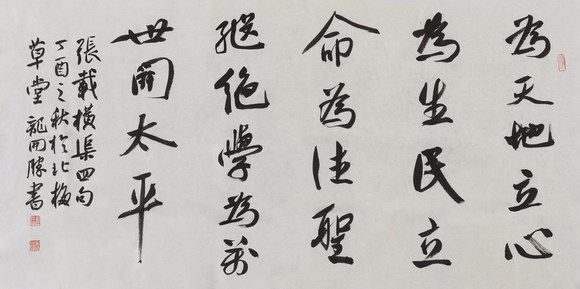 為天地立心
為生民立
命為往聖
繼絕學為萬
世開太平
張載橫渠四句
丁酉之秋於北梅
草堂龍開勝書